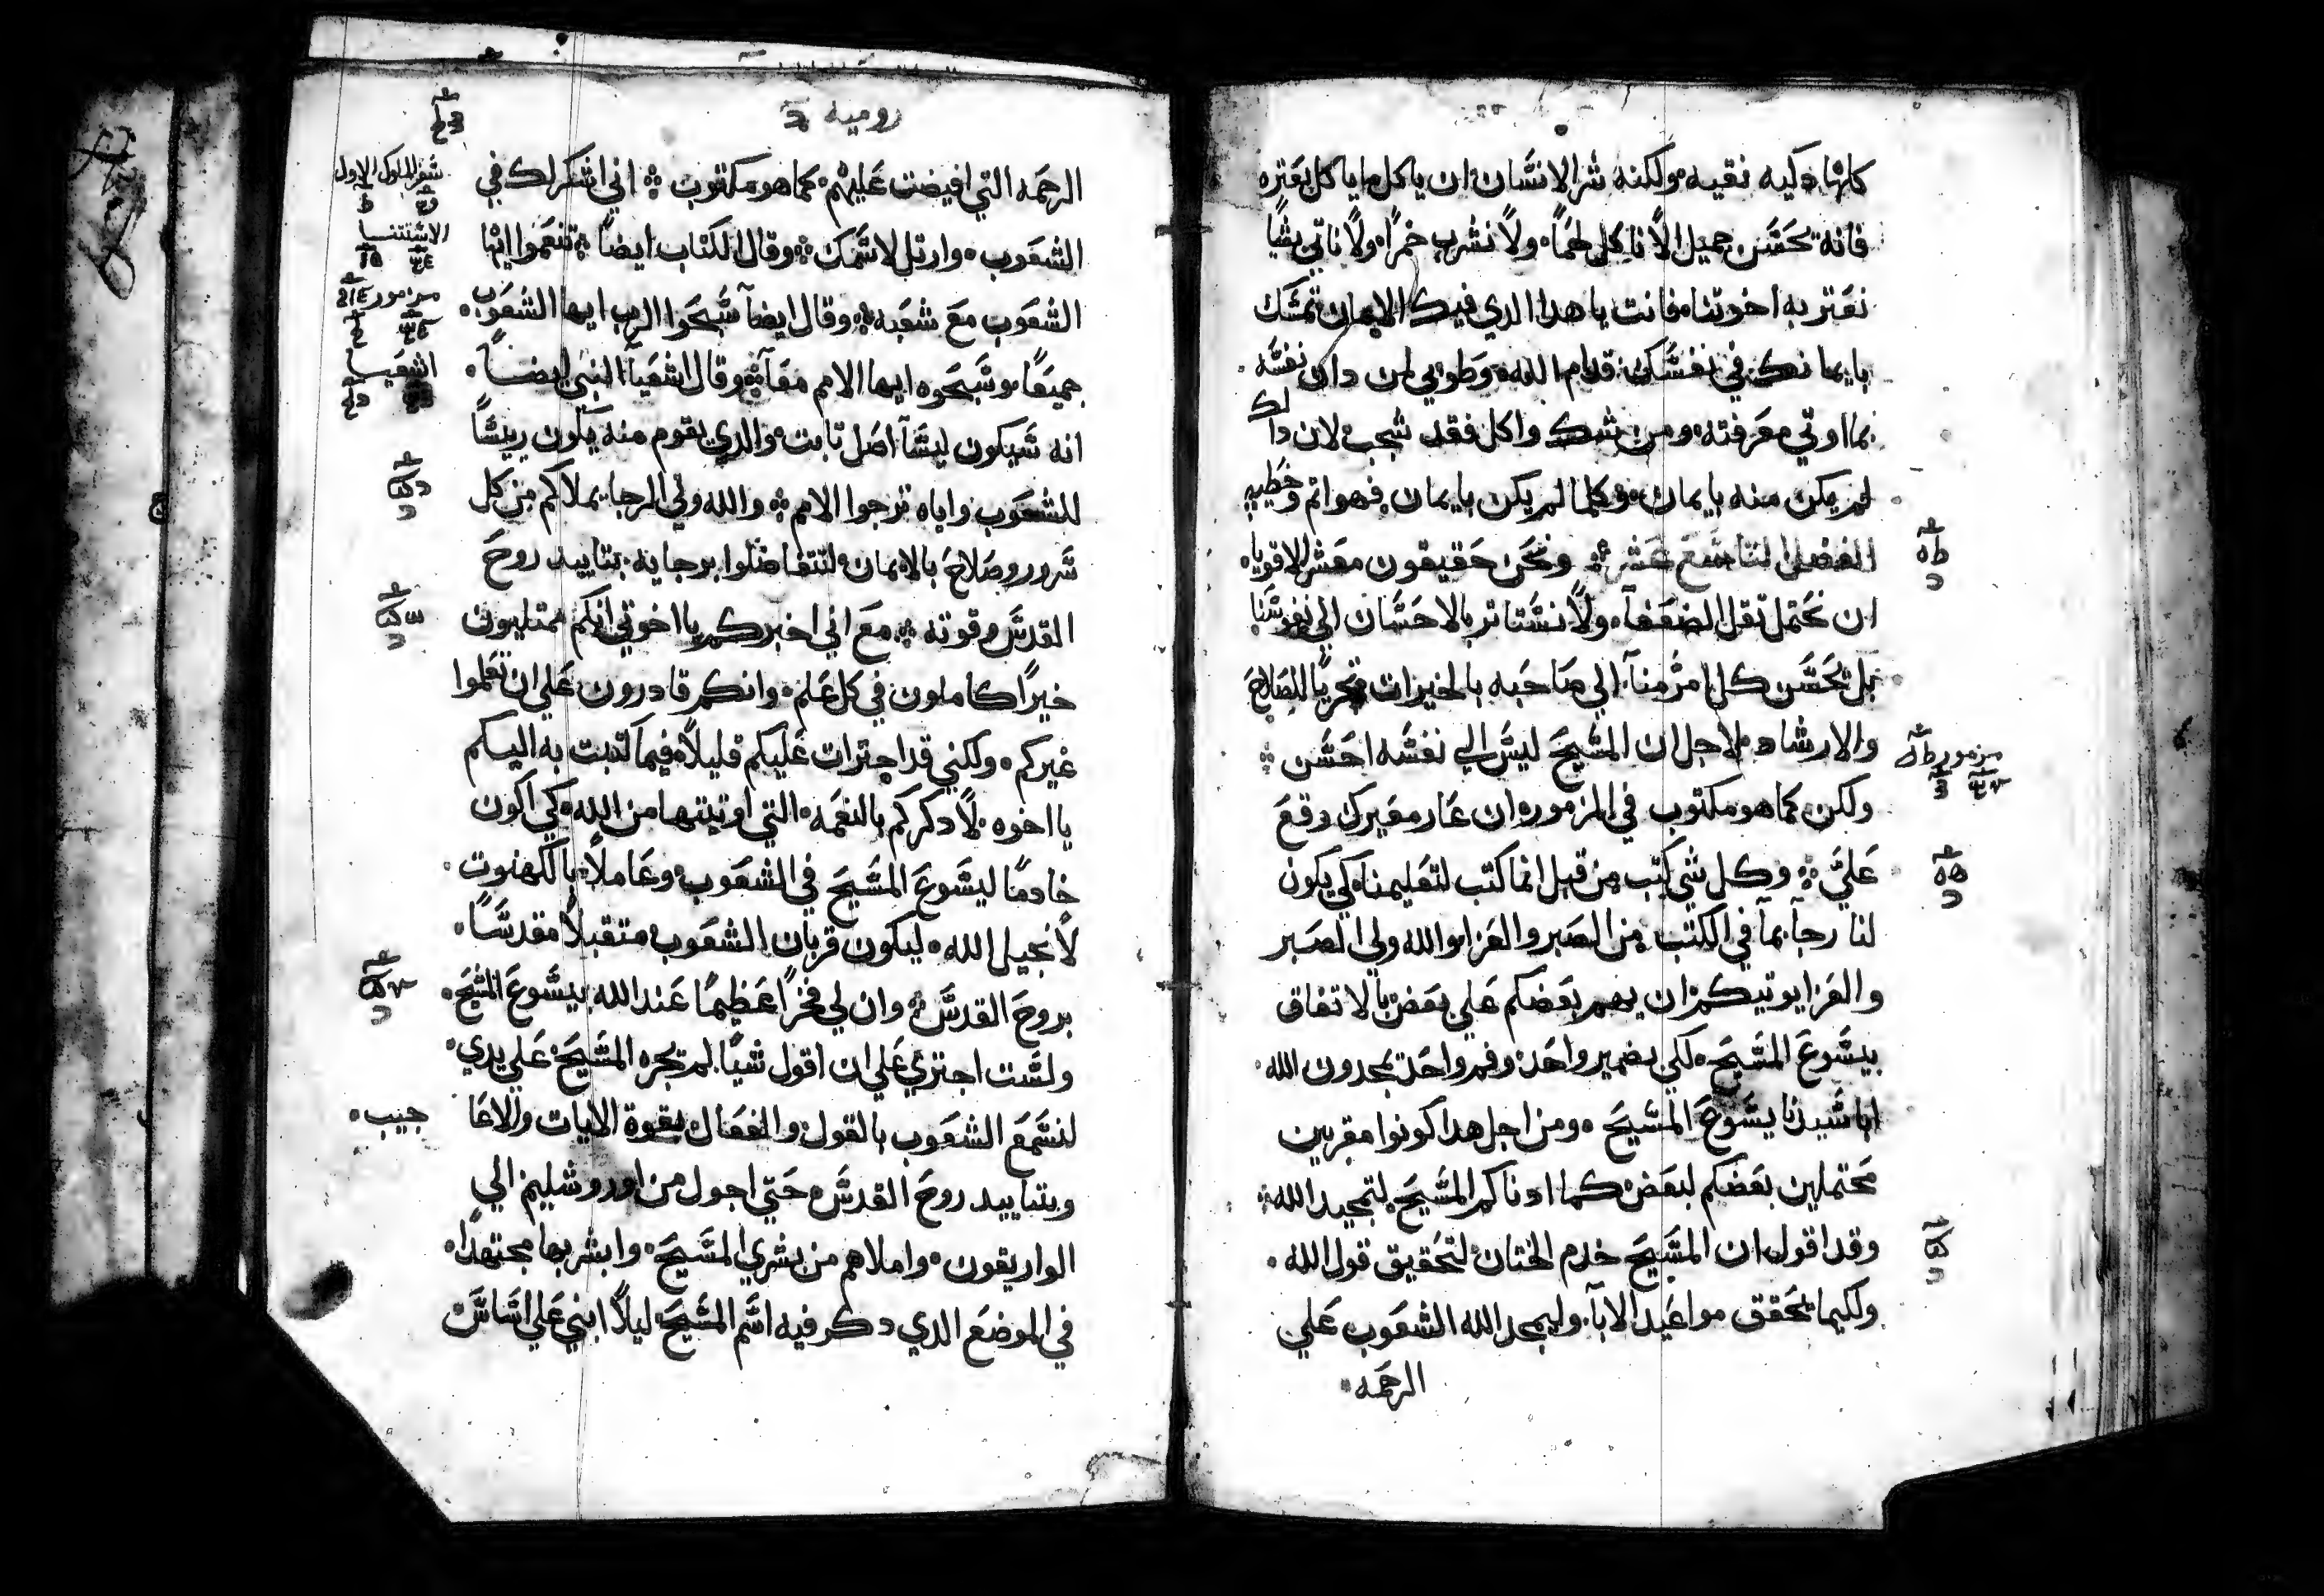 كلها دكيه نقيه ولكنه شر الانسان ان ياكل ما ياكل بعتره
فانه يحسن جميل الا ناكل لحما ولا نشرب خمرا ولا ناتي بشيا
نعتر به اخوتنا فانت يا هدا الدي فيك الايمان تمسك
بايمانك في نفسك قدام الله وطوبي لمن دان نفسه
بما اوتي معرفته ومن شك واكل فقد شجب لان داك
لم يكن منه بايمان وكلما لم يكن بايمان فهو اتم وخطيه
الفصل التاسع عشر ونحن حقيقون معشر الاقويا
ان نحتمل تقل الضعفا ولا نستاتر بالاحسان الي نفوسنا
بل يحسن كل امر منا الي صاحبه بالخيرات تحريا للصلاح
والارشاد لاجل ان المسيح ليس الي نفسه احسن
ولكن كما هو مكتوب في المزمور ان عار معيرك وقع
علي وكل شي كتب من قبل انما كتب لتعليمنا كي يكون
لنا رجا بما في الكتب من الصبر والعزا والله ولي الصبر
والعزا يوتيكم ان يهم بعضكم علي بعض بالاتفاق
بيسوع المسيح لكي بضمير واحد وفم واحد تمجدون الله
ابا سيدنا يسوع المسيح ومن اجل هدا كونوا مقربين
محتملين بعضكم لبعض كما ادناكم المسيح لتمجيد الله
وقد اقول ان المسيح خدم الختان لتحقيق قول الله
ولكيما يحقق مواعيد الابا وليمجد الله الشعوب علي
الرحمه
مزمور
روميه
الرحمه التي افيضت عليهم كما هو مكتوب اني اشكر لك في
الشعوب وارتل لاسمك وقال الكتاب ايضا تنعموا ايها
الشعوب مع شعبه وقال ايضا سبحوا الرب ايها الشعوب
جميعا وسبحوه ايها الامم معا وقال اشعيا النبي ايضا
انه سيكون ليسا اصل تابت والدي يقوم منه يكون رييسا
للشعوب واياه ترجوا الامم والله ولي الرجا يملاكم من كل
سرور وصلاح بالايمان لتتفاضلوا برجايه بتاييد روح
القدس وقوته مع اني اخبركم يا اخوتي انكم ممتليون
خيرا كاملون في كل علم وانكم قادرون علي ان تعلموا
غيركم ولكني قد اجترات عليكم قليلا فيما كتبت به اليكم
يا اخوه لادكركم بالنعمه التي اوتيتها من الله كي اكون
خادما ليسوع المسيح في الشعوب وعاملا بالكهنوت
لانجيل الله ليكون قربان الشعوب متقبلا مقدسا
بروح القدس وان لي فخرا عظيما عند الله بيسوع المسيح
ولست اجتري علي ان اقول شيا لم يجره المسيح علي يدي
لنسمع الشعوب بالقول والفعال بقوة الايات والاعا
جيب
وبتاييد روح القدس حتي اجول من اوروشليم الي
الواريقون واملاهم من بشري المسيح وابشر بها مجتهدا
في الموضع الدي دكر فيه اسم المسيح ليلا ابني علي اساس
سفر الملوك الاول
الاستتنا
مزمور
اشعيا